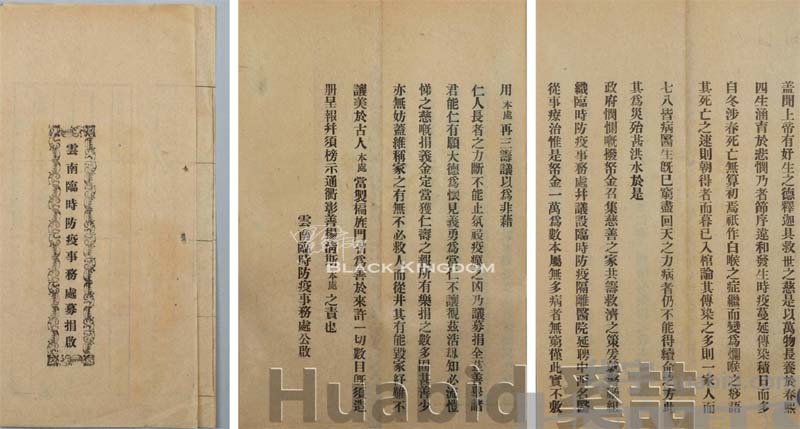 雲南臨時防疫事務處募捐啟
蓋聞上帝有好生之德釋迦具救世之慈是以萬物長養於春熙
四生涵育於悲憫乃者節序違和發生時疫蔓延傳染積日而多
自冬涉春死亡無算初焉祇作白喉之症繼而變爲爛喉之痧語
其死亡之速則朝得者而暮已入棺論其傳染之多則一家人而
七八皆病醫生旣已窮盡回天之力病者仍不能得續命之方此
其爲災殆甚洪水於是
政府憫惻慨撥帑金召集慈善之家共籌救濟之策爰組
織臨時防疫事務處幷議設臨時防疫隔離醫院延聘中西名醫
從事療治惟是帑金一萬爲數本屬無多病者無窮僅此實不敷
用本處再三籌議以爲非藉
仁人長者之力斷不能止氛祲疫癘之凶乃議募捐全慈善畢諸
君能仁有願大德爲懷見義勇爲當仁不讓覩茲浩刼知必流愷
悌之慈慨捐義金定當獲仁壽之報所有樂捐之數多固甚善少
亦無妨蓋維稱家之有無不必救人而從井其有能毀家紓難不
讓美於古人本處當製匾旌門昌爲善於來許一切數目旣須造
册呈報幷須榜示通衢彰善揚斯本處之責也
雲南臨時防疫事務處公啟
BLACK KINGDOM
Huabid